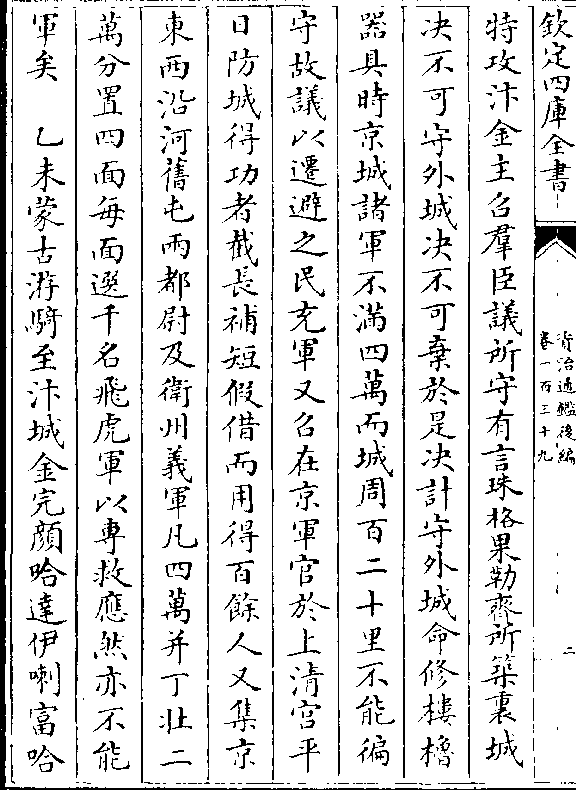 欽定四庫全書
資治通鑑後編
卷一百三十九
二
特攻汴金主召羣臣議所守有言珠格果勒齊所築裏城
決不可守外城決不可棄於是決計守外城命修樓櫓
器具時京城諸軍不滿四萬而城周百二十里不能徧
守故議以遷避之民充軍又召在京軍官於上清宮平
日防城得功者截長補短假借而用得百餘人又集京
東西沿河舊屯兩都尉及衛州義軍凡四萬并丁壯二
萬分置四面每面選千名飛虎軍以專救應然亦不能
軍矣　乙未蒙古游騎至汴城金完顏哈達伊喇富哈